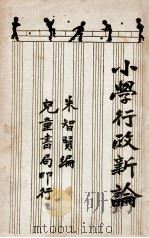 小學行政新論
朱智賢編
兒童書局印行